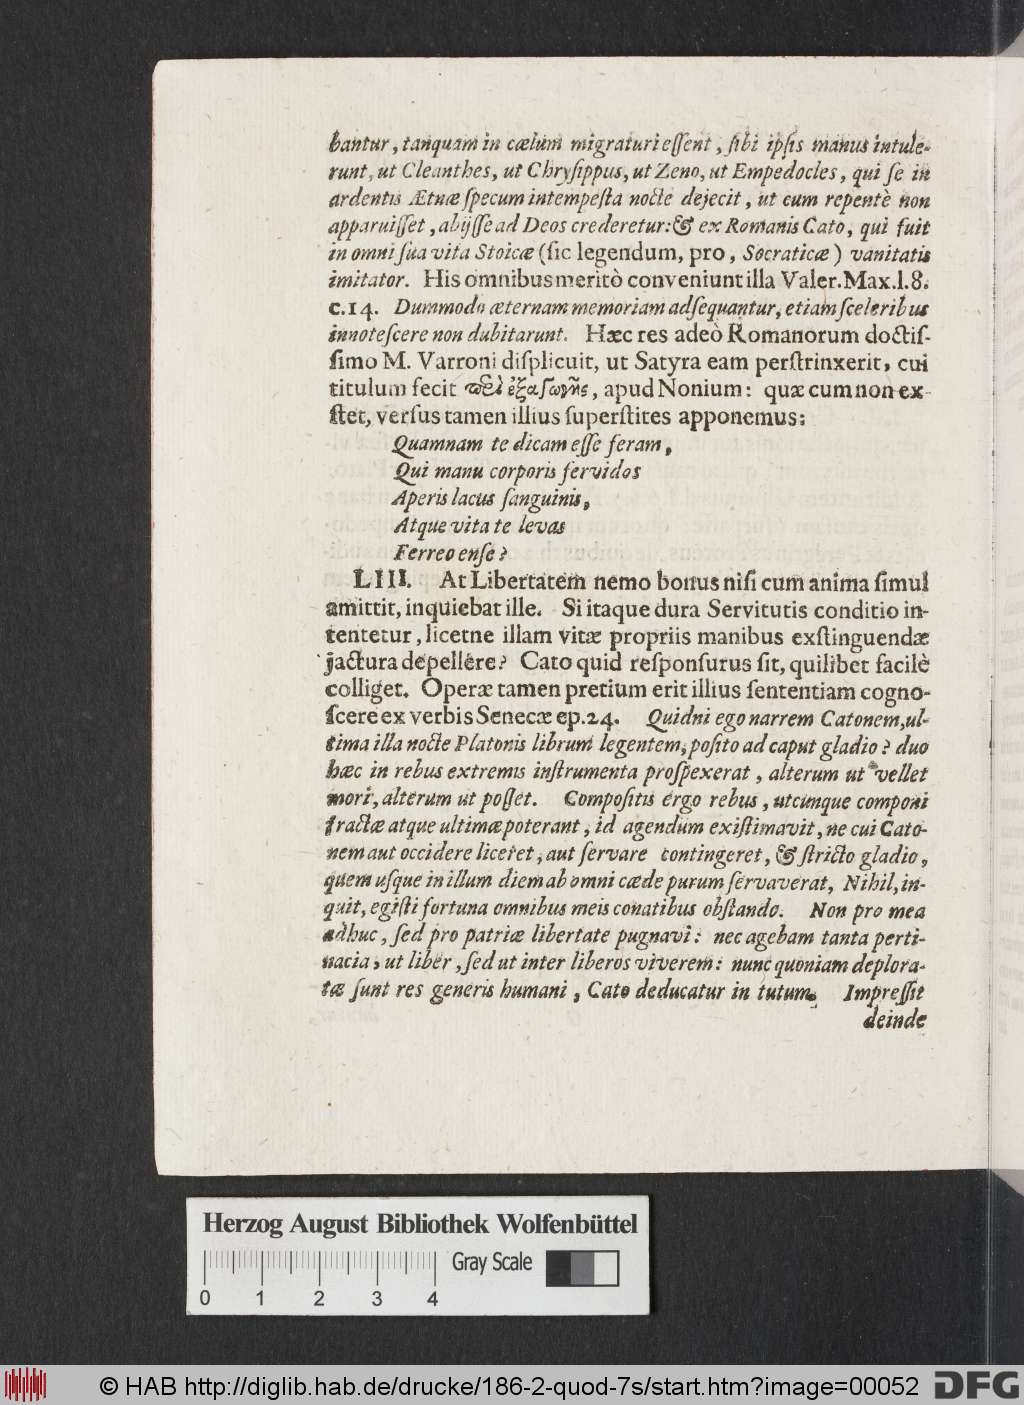 bantur, tanquam in cælum migraturi essent, sibi ipsis manus intule-
runt, ut Cleanthes, ut Chrysippus, ut Zeno, ut Empedocles, qui se in
ardentis Ætnæ specum intempesta nocte dejecit, ut cum repentè non
apparuisset, abijsse ad Deos crederetur: & ex Romanis Cato, qui fuit
in omni sua vita Stoicæ (sic legendum, pro, Socraticæ) vanitatis
imitator. His omnibus meritò conveniunt illa Valer. Max. l. 8.
c. 14. Dummodo æternam memoriam adsequantur, etiam sceleribus
innotescere non dubitarunt. Hæc res adeò Romanorum doctis-
simo M. Varroni displicuit, ut Satyra eam perstrinxerit, cui
titulum fecit περὶ ἐξαγωγῆς, apud Nonium: quæ cum non ex-
stet, versus tamen illius superstites apponemus:
Quamnam te dicam esse feram,
Qui manu corporis fervidos
Aperis lacus sanguinis,
Atque vita te levas
Ferreo ense?
LIII. At Libertatem nemo bonus nisi cum anima simul
amittit, inquiebat ille. Si itaque dura Servitutis conditio in-
tentetur, licetne illam vitæ propriis manibus exstinguendæ
jactura depellere? Cato quid responsurus sit, quilibet facilè
colliget. Operæ tamen pretium erit illius sententiam cogno-
scere ex verbis Senecæ ep. 24. Quidni ego narrem Catonem, ul-
tima illa nocte Platonis librum legentem, posito ad caput gladio? duo
hæc in rebus extremis instrumenta prospexerat, alterum ut vellet
mori, alterum ut posset. Compositis ergo rebus, utcunque componi
fractæ atque ultimæ poterant, id agendum existimavit, ne cui Cato-
nem aut occidere liceret, aut servare contingeret, & stricto gladio,
quem usque in illum diem ab omni cæde purum servaverat, Nihil, in-
quit, egisti fortuna omnibus meis conatibus obstando. Non pro mea
adhuc, sed pro patriæ libertate pugnavi: nec agebam tanta perti-
nacia, ut liber, sed ut inter liberos viverem: nunc quoniam deplora-
tæ sunt res generis humani, Cato deducatur in tutum. Impressit
deinde
Herzog August Bibliothek Wolfenbüttel
Gray Scale
0 1 2 3 4
© HAB http://diglib.hab.de/drucke/186-2-quod-7s/start.htm?image=00052 DFG